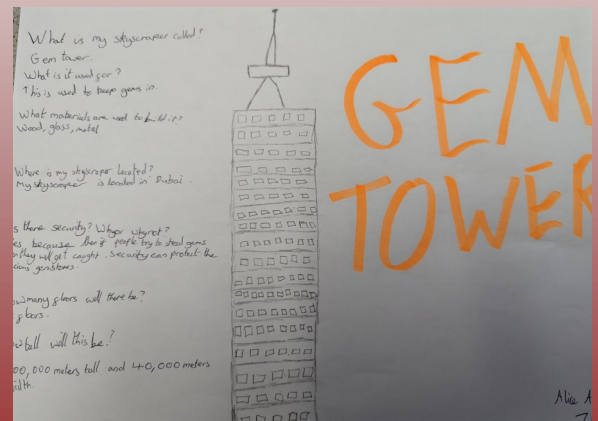 What is my skyscraper called?
Gem tower.
What is it used for?
This is used to keep gems in.
What materials are used to build it?
Wood, glass, metal
Where is my skyscraper located?
My skyscraper is located in Dubai.
s there security? Why or why not?
es because then if people try to steal gems
they will get caught. Security can protect the
gemstones.
w many floors will there be?
floors.
w tall will this be?
00,000 meters tall and 40,000 meters
idth.
GEM
TOWER
Alice A
7